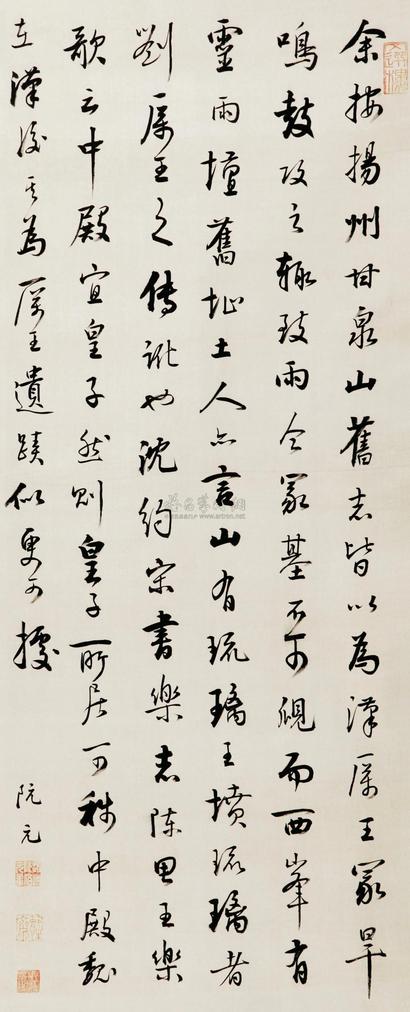 余按揚州甘泉山舊志皆以為漢厲王冢旱
鳴鼓攻之輙致雨今冢基不可覩而西峯有
靈雨壇舊址土人亦言山有琉璃王墳琉璃者
劉厲王之傳訛也沈約宋書樂志陳思王樂
歌云中殿宜皇子然則皇子所居可稱中殿魏
在漢後其為厲王遺蹟似更可據
阮元